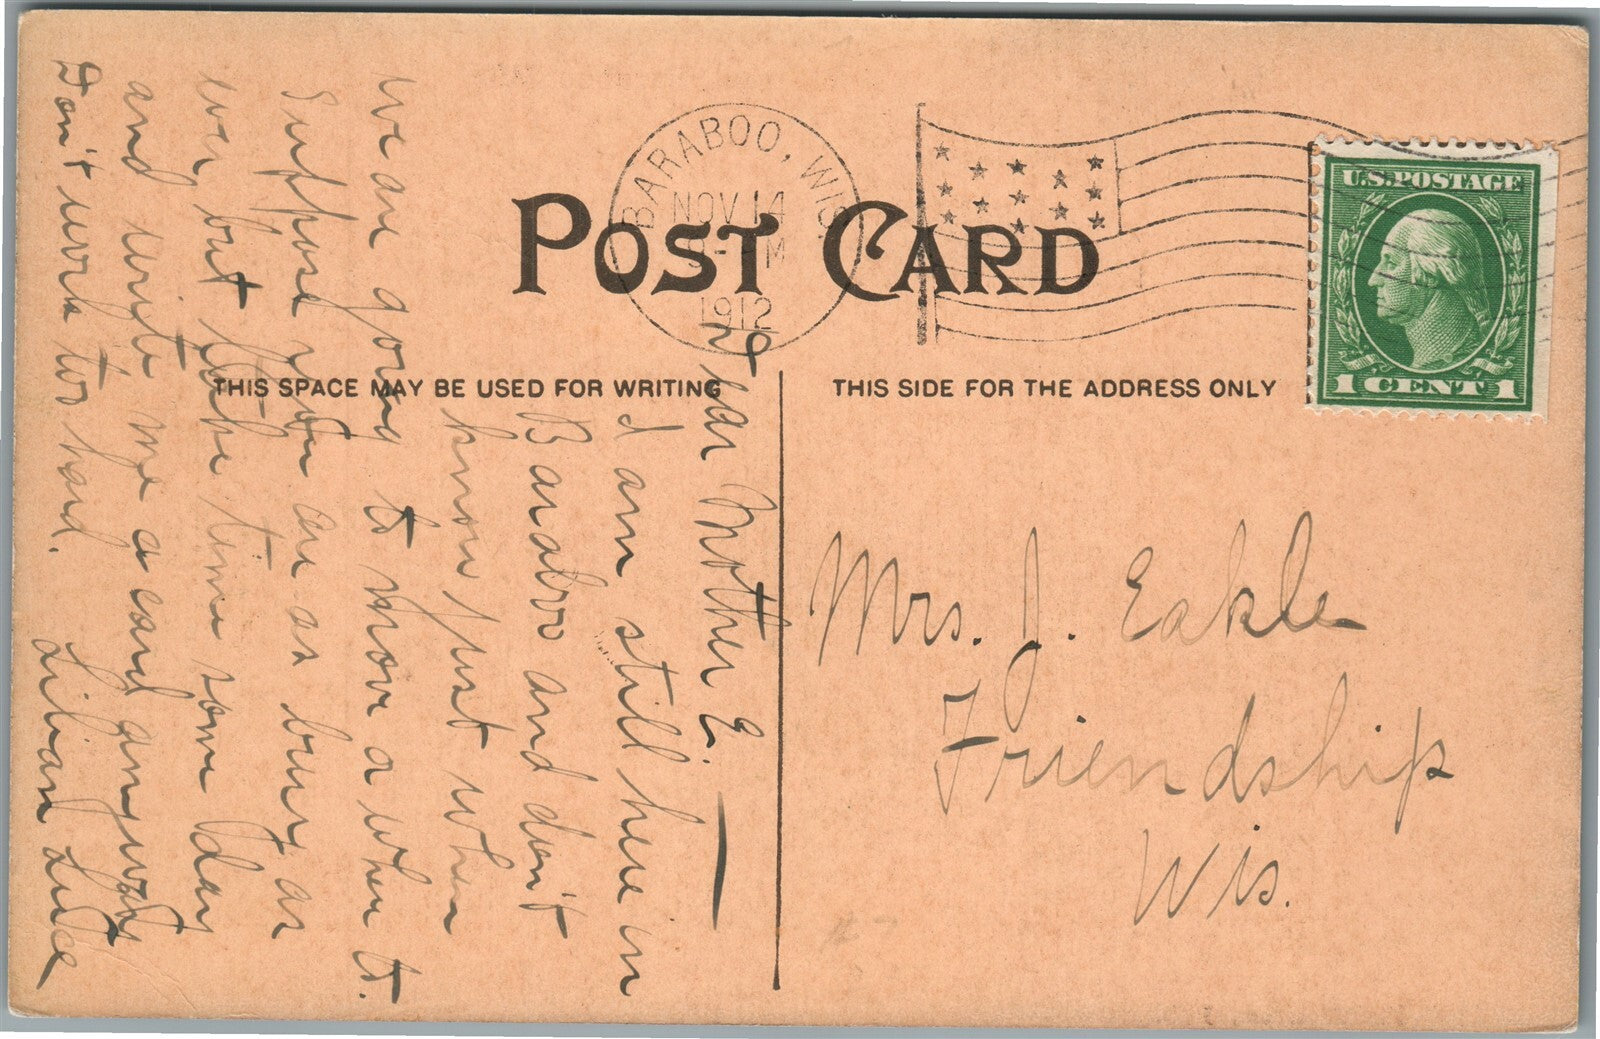 BARABOO, WIS.
NOV 14
M
1912
POST CARD
U.S. POSTAGE
1 CENT 1
THIS SPACE MAY BE USED FOR WRITING
THIS SIDE FOR THE ADDRESS ONLY
Dear Mother E. —
I am still here in
Baraboo and don't
know just when
we are going to moov or when to.
Suppose you are as busy as
ever but take time some day
and write me a card anyway
Don't work too hard.
Mrs. J. Eakle
Friendship
Wis.